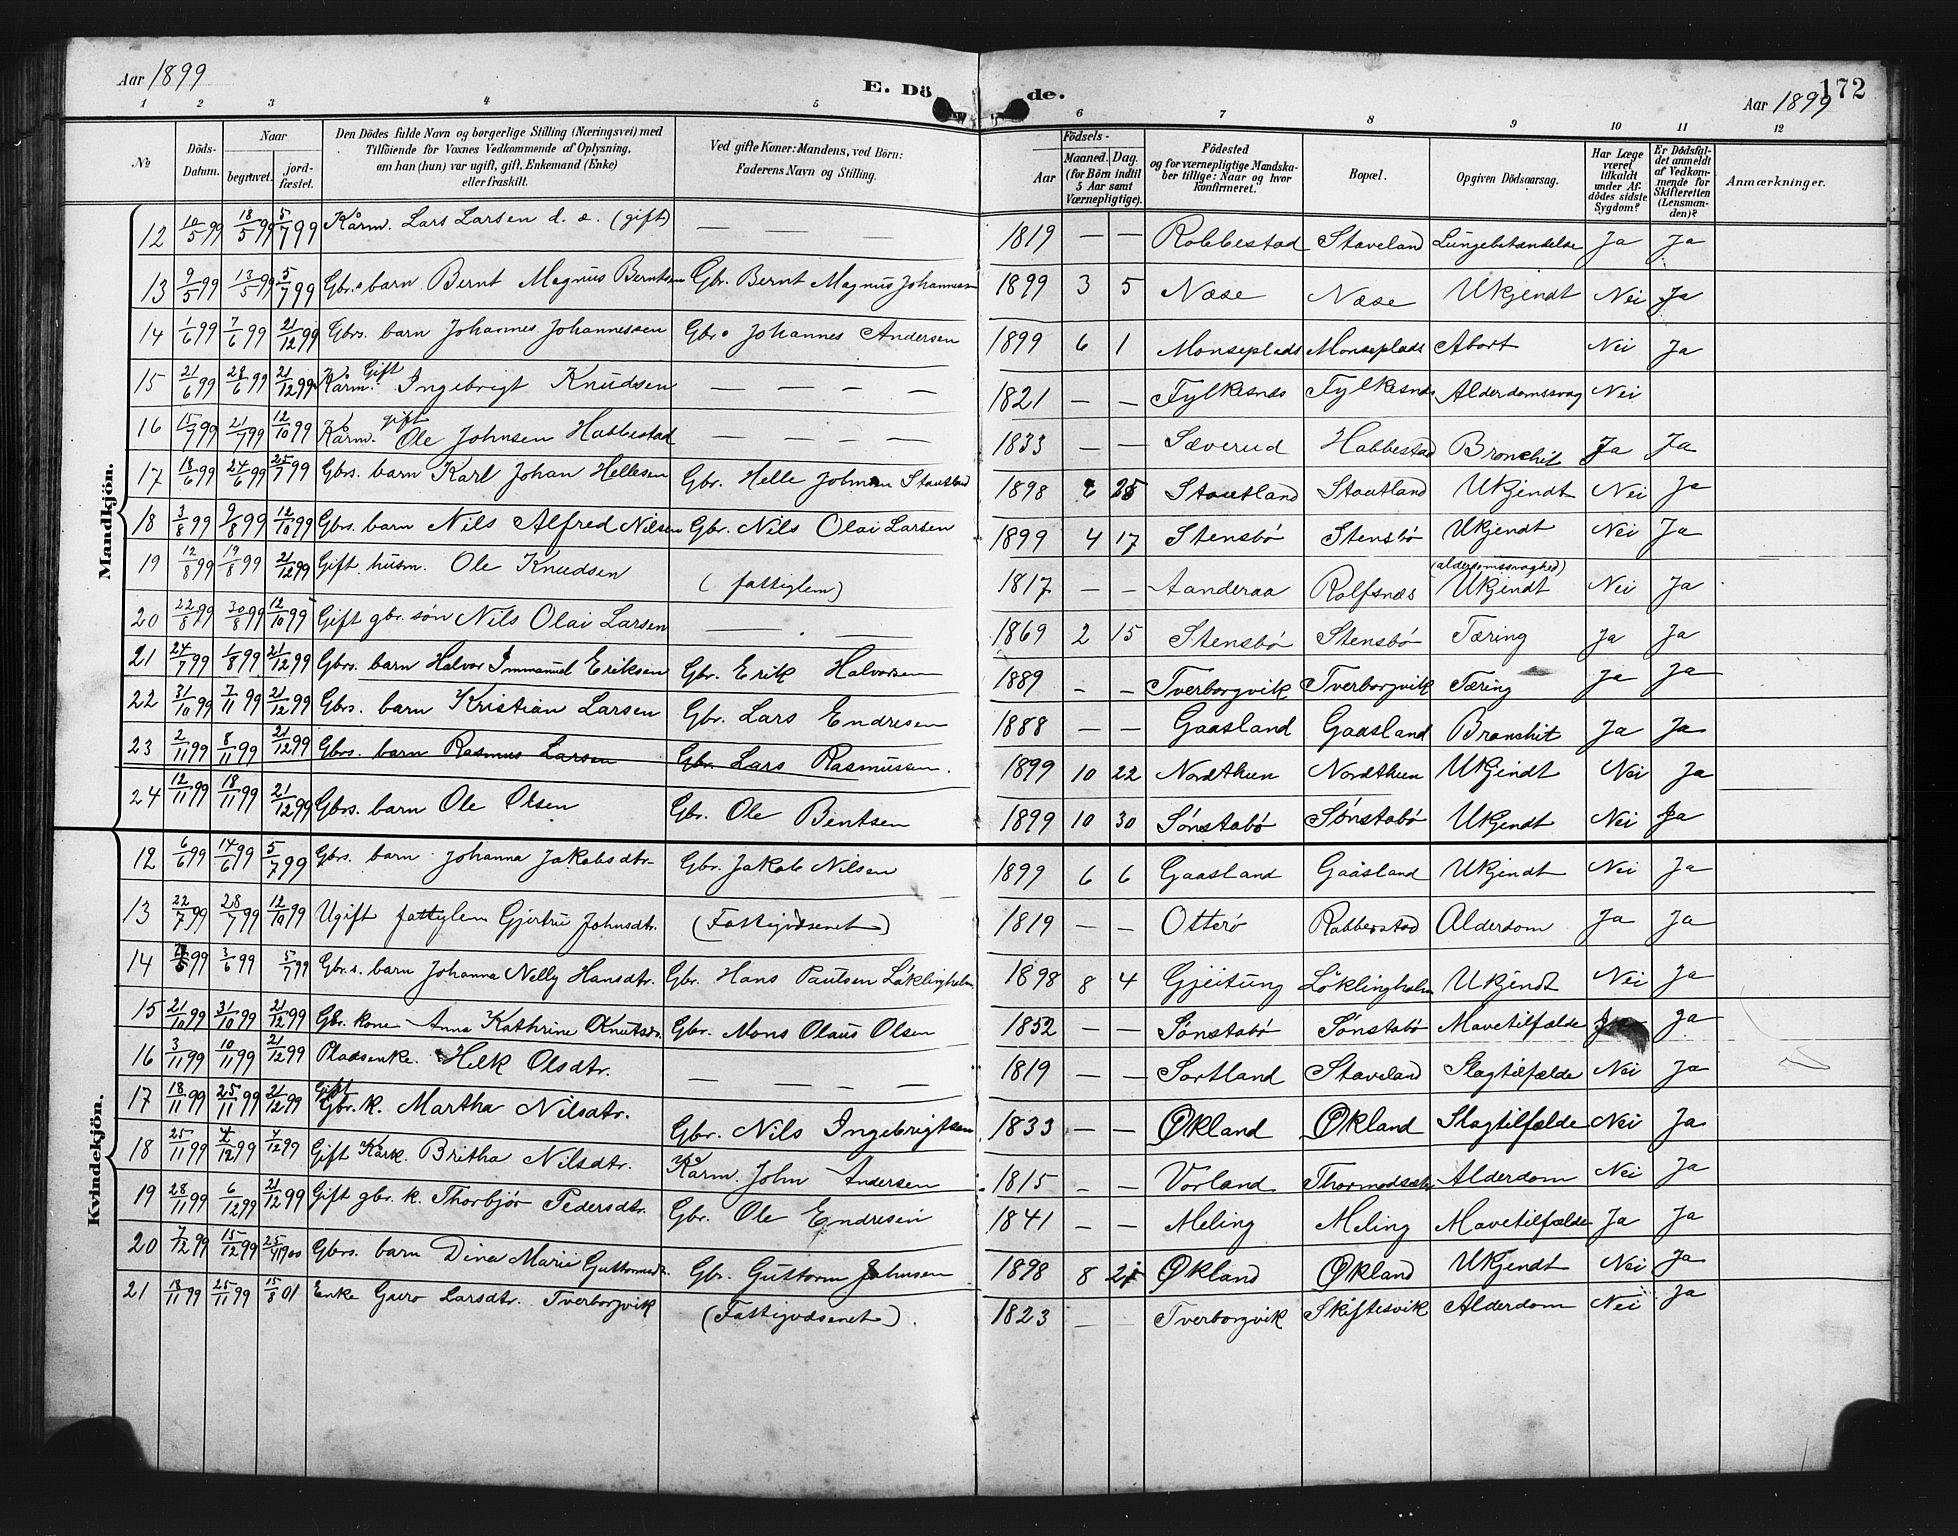 Aar 1899
E. Döde.
Aar 1899
172
1 2 3 4 5 6 7 8 9 10 11 12
No
Döds-Datum.
Naar
begravet.
jordfæstet.
Den Dödes fulde Navn og borgerlige Stilling (Næringsvei) med Tilföiende for Voxnes Vedkommende af Oplysning, om han (hun) var ugift, gift, Enkemand (Enke) eller fraskilt.
Ved gifte Koner: Mandens, ved Börn: Faderens Navn og Stilling.
Födsels-
Aar
Maaned. Dag.
(for Börn indtil 5 Aar samt Værnepligtige).
Födested og for værnepligtige Mandskaber tillige: Naar og hvor Konfirmeret.
Bopæl.
Opgiven Dödsaarsag.
Har Læge været tilkaldt under Afdödes sidste Sygdom?
Er Dödsfaldet anmeldt af Vedkommende for Skifteretten (Lensmanden)?
Anmærkninger.
Mandkjön.
12 10/5 99 18/5 99 5/7 99 Kårm. Lars Larsen d. e. (gift) — — — 1819 — — Robbestad Staveland Lungebetændelse Ja Ja
13 9/5 99 13/5 99 5/7 99 Gbr.s barn Bernt Magnus Berntsen Gbr. Bernt Magnus Johannesen 1899 3 5 Næse Næse Ukjendt Nei Ja
14 1/6 99 7/6 99 21/12 99 Gbrs. barn Johannes Johannessen Gbr. Johannes Andersen 1899 6 1 Monseplads Monseplads Abort Nei Ja
15 21/6 99 28/6 99 21/12 99 Kårm. Gift Ingebrigt Knudsen — — — — 1821 — — Fylkesnæs Fylkesnæs Alderdomssvag Nei
16 15/7 99 21/7 99 12/10 99 Kårm. gift Ole Johnsen Habbestad — — — — 1833 — — Sæverud Habbestad Bronchit Ja Ja
17 18/6 99 24/6 99 25/7 99 Gbrs. barn Karl Johan Hellesen Gbr. Helle Johnsen Stautland 1898 6 25 Stautland Stautland Ukjendt Nei Ja
18 3/8 99 9/8 99 12/10 99 Gbrs. barn Nils Alfred Nilsen Gbr. Nils Olai Larsen 1899 4 17 Stensbø Stensbø Ukjendt Nei Ja
19 12/8 99 19/8 99 21/12 99 Gift husm. Ole Knudsen (fattiglem) 1817 — — Aanderaa Rolfsnæs (alderdomssvaghed) Ukjendt Nei Ja
20 22/8 99 30/8 99 12/10 99 Gift gbr. søn Nils Olai Larsen — — — 1869 2 15 Stensbø Stensbø Tæring Ja Ja
21 24/7 99 1/8 99 21/12 99 Gbrs. barn Halvor Immanuel Eriksen Gbr. Erik Halvorsen 1889 — — Tverborgvik Tverborgvik Tæring Ja Ja
22 31/10 99 7/11 99 21/12 99 Gbrs. barn Kristian Larsen Gbr. Lars Endresen 1888 — — Gaasland Gaasland Bronchit Ja Ja
23 2/11 99 8/11 99 21/12 99 Gbrs. barn Rasmus Larsen Gbr. Lars Rasmussen. 1899 10 22 Nordthun Nordthun Ukjendt Nei Ja
24 12/11 99 18/11 99 21/12 99 Gbrs. barn Ole Olsen Gbr. Ole Bentsen 1899 10 30 Sønstabø Sønstabø Ukjendt Nei Ja
Kvindekjön.
12 6/6 99 14/6 99 5/7 99 Gbrs. barn Johanna Jakobsdtr. Gbr. Jakob Nilsen 1899 6 6 Gaasland Gaasland Ukjendt Nei Ja
13 22/7 99 28/7 99 12/10 99 Ugift fattiglem Gjertrú Johnsdtr. (Fattigvæsenet) 1819 — — Otterø Rabbestad Alderdom Ja Ja
14 99 3/6 99 5/7 99 Gbr.s. barn Johanna Nelly Hansdtr. Gbr. Hans Paulsen Løklingholm 1898 8 4 Gjeitung Løklingholm Ukjendt Nei Ja
15 21/10 99 31/10 99 21/12 99 Gbr. kone Anna Kathrine Knutsdr. Gbr. Mons Olaus Olsen 1852 — — Sønstabø Sønstabø Mavetilfælde Ja Ja
16 3/11 99 10/11 99 21/12 99 Pladsenke. Helk Olsdtr. — — — — 1819 — — Sortland Staveland Slagtilfælde Nei Ja
17 18/11 99 25/11 99 21/12 99 Gift Gbr. k. Martha Nilsdtr. Gbr. Nils Ingebrigtsen 1833 — — Økland Økland Slagtilfælde Nei Ja
18 25/11 99 4/12 99 4/12 99 Gift Kårk. Britha Nilsdtr. Kårm. John Andersen 1815 — — Vorland Thormodsæter Alderdom Nei Ja
19 28/11 99 6/12 99 21/12 99 Gift gbr. k. Thorbjør Pedersdtr. Gbr. Ole Endresen 1841 — — Meling Meling Mavetilfælde Ja Ja
20 7/12 99 15/12 99 25/4 1900 Gbrs. barn Dina Marie Guttormsdr. Gbr. Guttorm Johnsen 1898 8 21 Økland Økland Ukjendt Nei Ja
21 18/11 99 25/11 99 15/8 01 Enke Guro Larsdtr. Tverborgvik (Fattigvæsenet). 1823 — — Tverborgvik Skiftesvik Alderdom Nei Ja